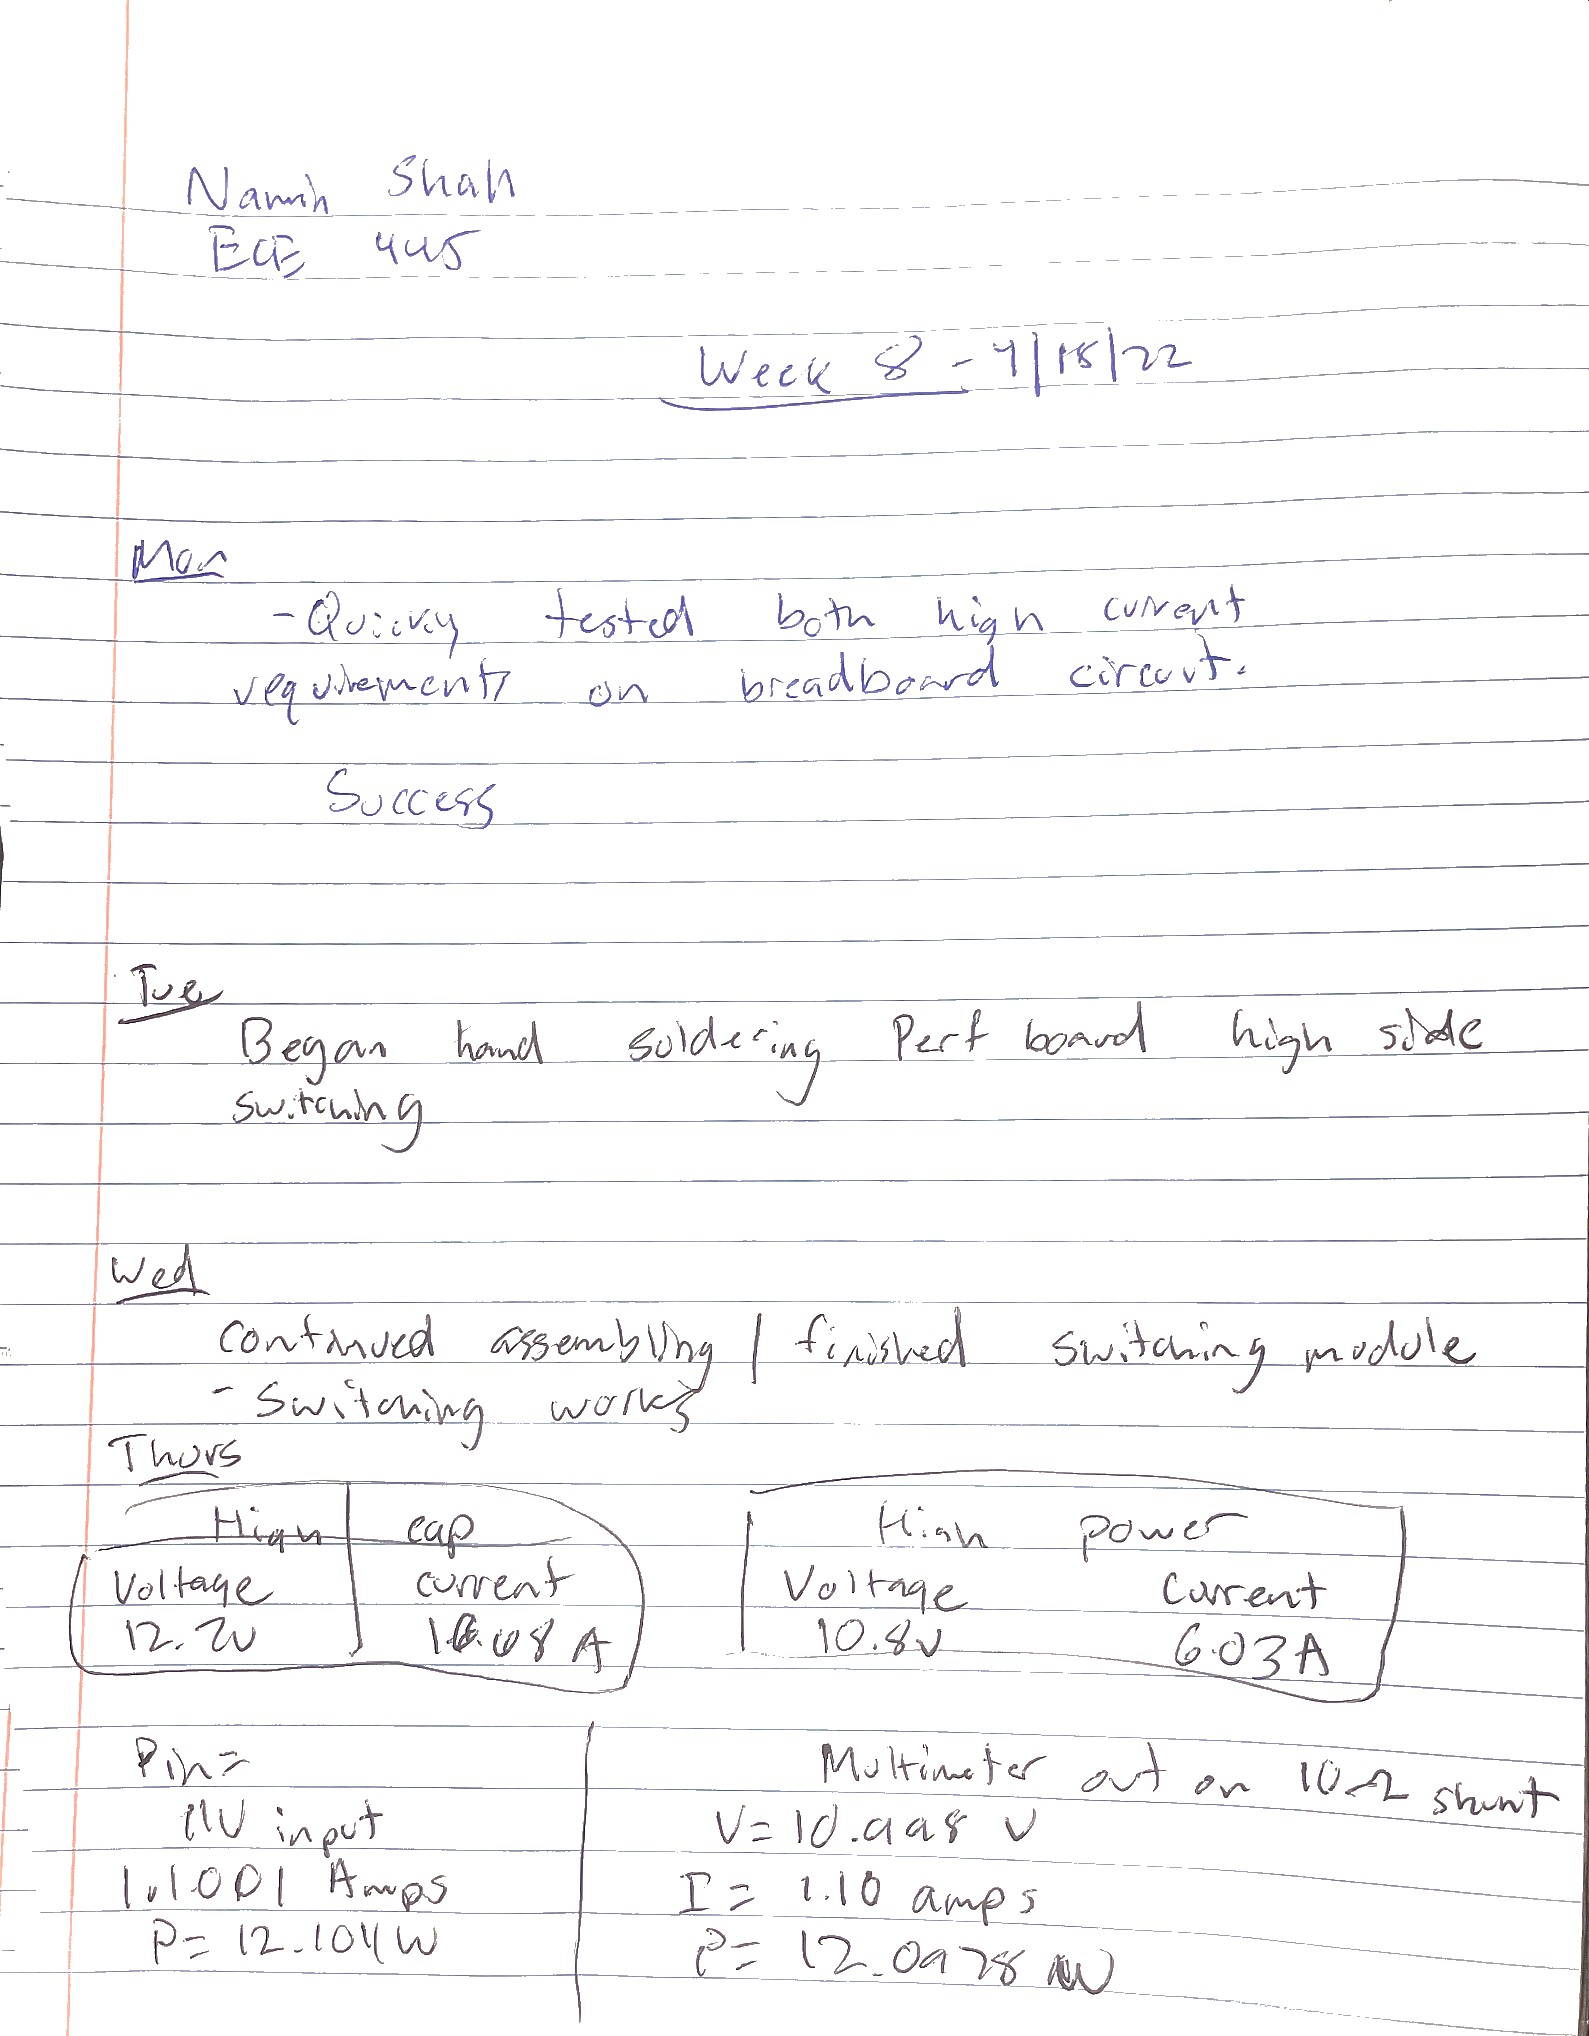 Namih Shah
ECE 445
Week 8 - 4/18/22
Mon
- Quickly tested both high current
requirements on breadboard circuit.
Success
Tue
Began hand soldering Perf board high side
switching
Wed
continued assembling / finished switching module
- Switching works
Thurs
High cap
Voltage current
12.2v A
High power
Voltage Current
10.8v 6.03A
Pin=
11V input
1.1001 Amps
P= 12.1011W
Multimeter out on 10Ω shunt
V= 10.998 V
I= 1.10 amps
P= 12.0978 W